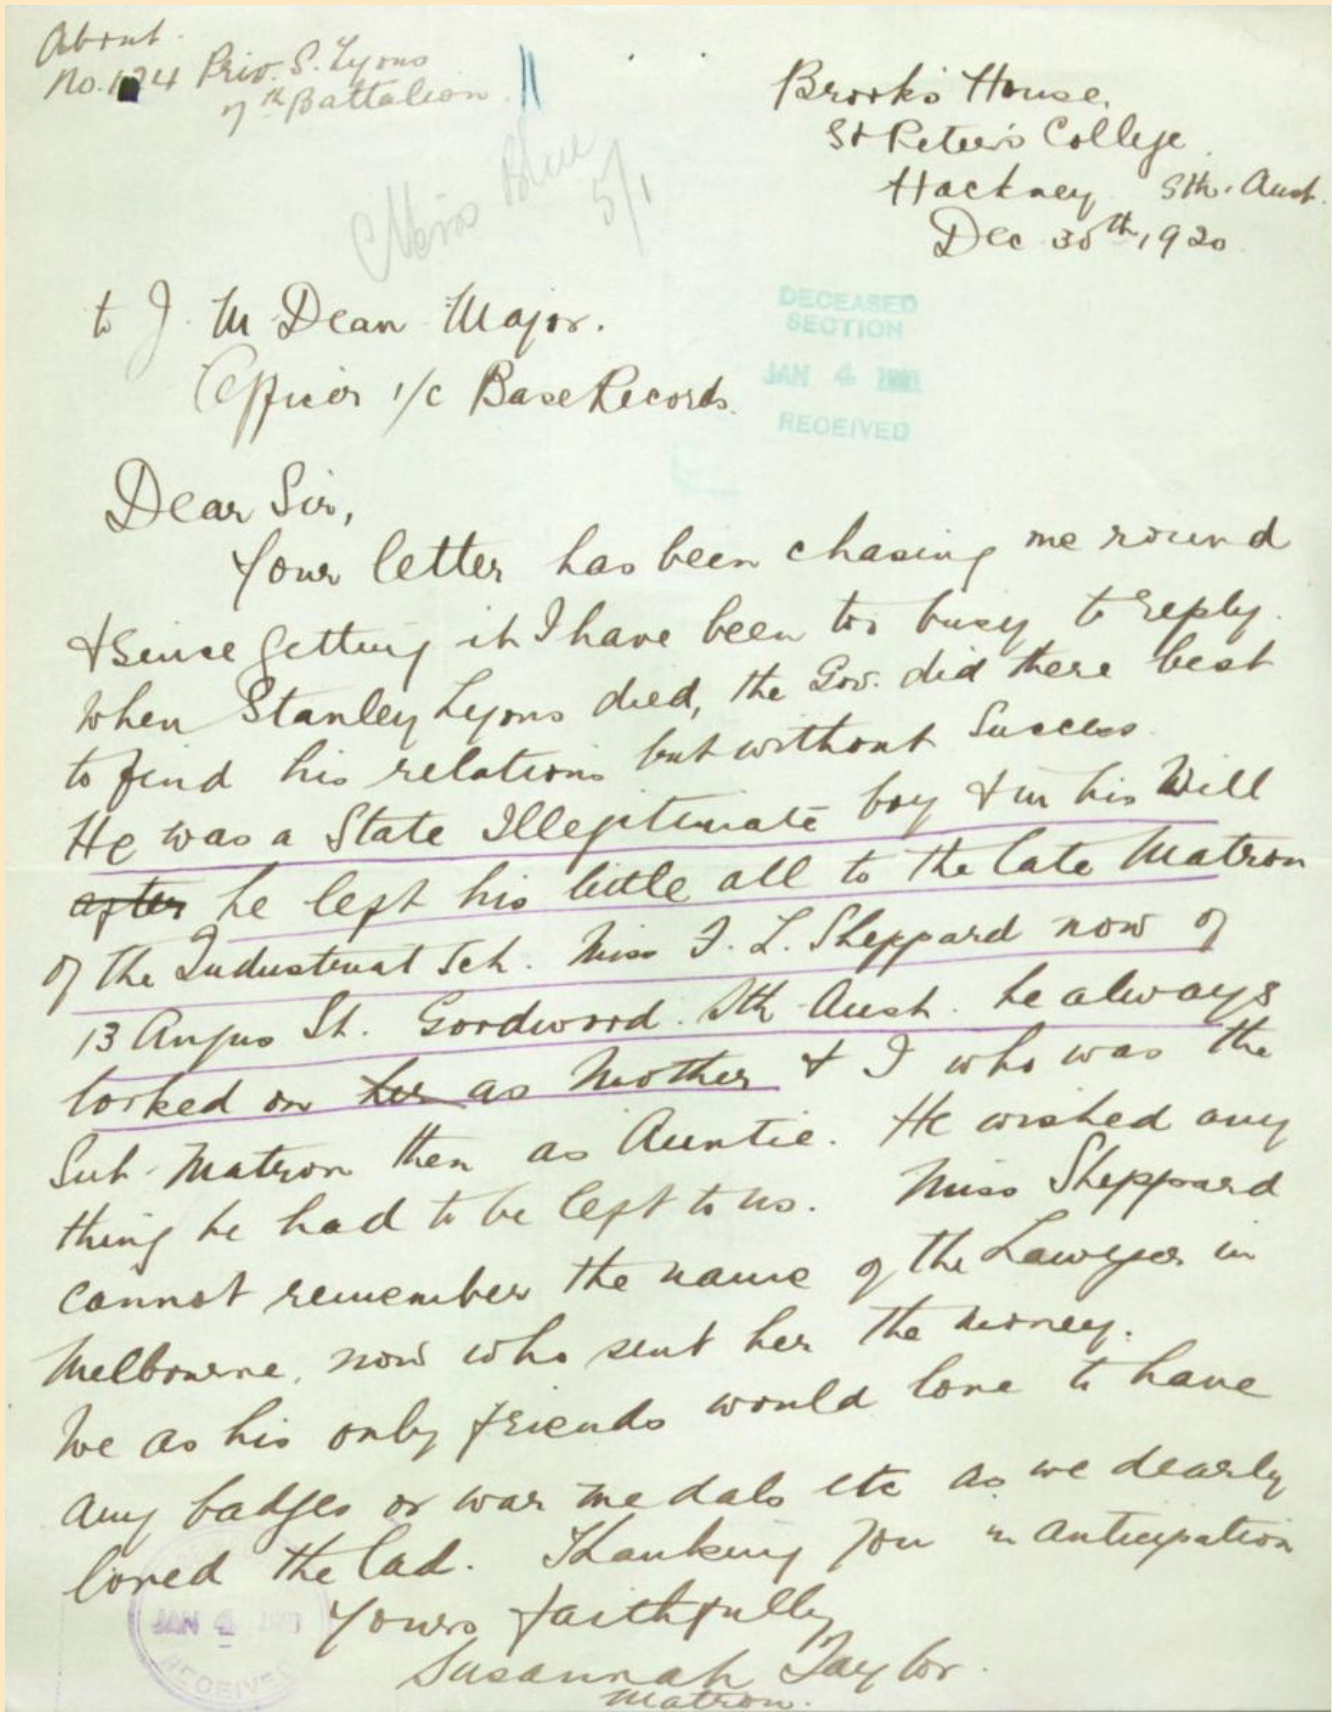 About
No. 1 24 Priv. S. Lyons
7th Battalion
Miss Blue
5/1
Brooks House.
St Peter's College
Hackney Sth. Aust.
Dec 30th, 1920
to J. M Dean Major.
Officer i/c Base Records.
DECEASED
SECTION
JAN 4 1921
RECEIVED
Dear Sir,
Your letter has been chasing me round
& since getting it I have been too busy to reply.
When Stanley Lyons died, the Gov. did there best
to find his relations but without success.
He was a State Illegitimate boy & in his Will
after he left his little all to the late Matron
of the Industrial Sch. Miss J. L. Sheppard now of
13 Angus St. Goodwood. Sth Aust. he always
looked on her as Mother & I who was the
Sub-Matron then as Auntie. He wished any
thing he had to be left to us. Miss Sheppard
cannot remember the name of the Lawyer in
Melbourne, now who sent her the money.
We as his only friends would love to have
any badges or war medals etc as we dearly
loved the lad. Thanking you in anticipation
Yours faithfully
Susannah Taylor.
Matron.
JAN 4 1921
RECEIVED